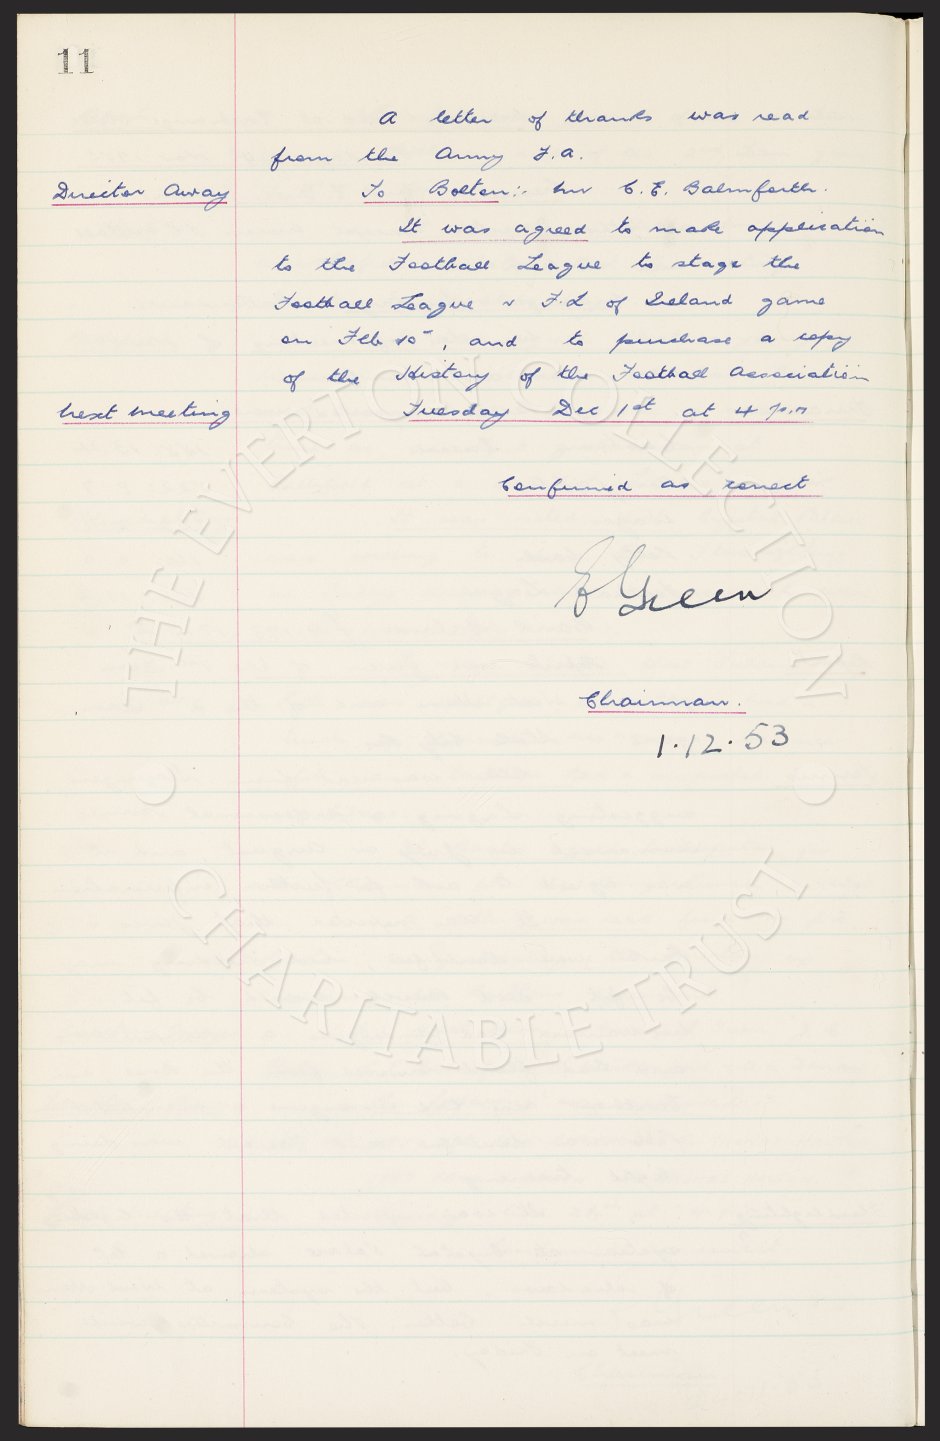 11
A letter of thanks was read
from the Army F.A.
Director Away To Bolton:- Mr C. E. Balmforth.
It was agreed to make application
to the Football League to stage the
Football League v F.L of Ireland game
on Feb 10th, and to purchase a copy
of the History of the Football Association
Next Meeting Tuesday Dec 1st at 4 p.m
Confirmed as correct
E Green
Chairman.
1.12.53
THE EVERTON COLLECTION
CHARITABLE TRUST